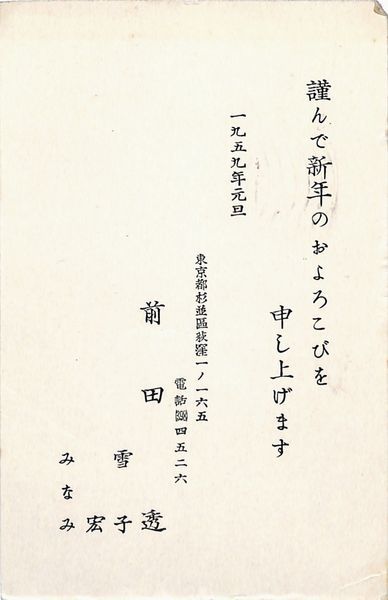 謹んで新年のおよろこびを
申し上げます
一九五九年元旦
東京都杉並區荻窪一ノ一六五
電話 四五二六
前田 透
雪子
宏
みなみ